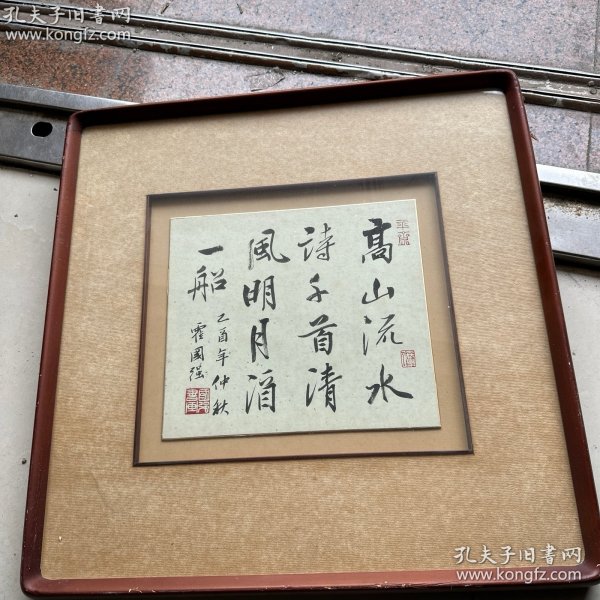 孔夫子旧書网
www.kongfz.com
高山流水
詩千首清
風明月酒
一船
乙酉年仲秋
霍國強
孔夫子旧書网
www.kongfz.com